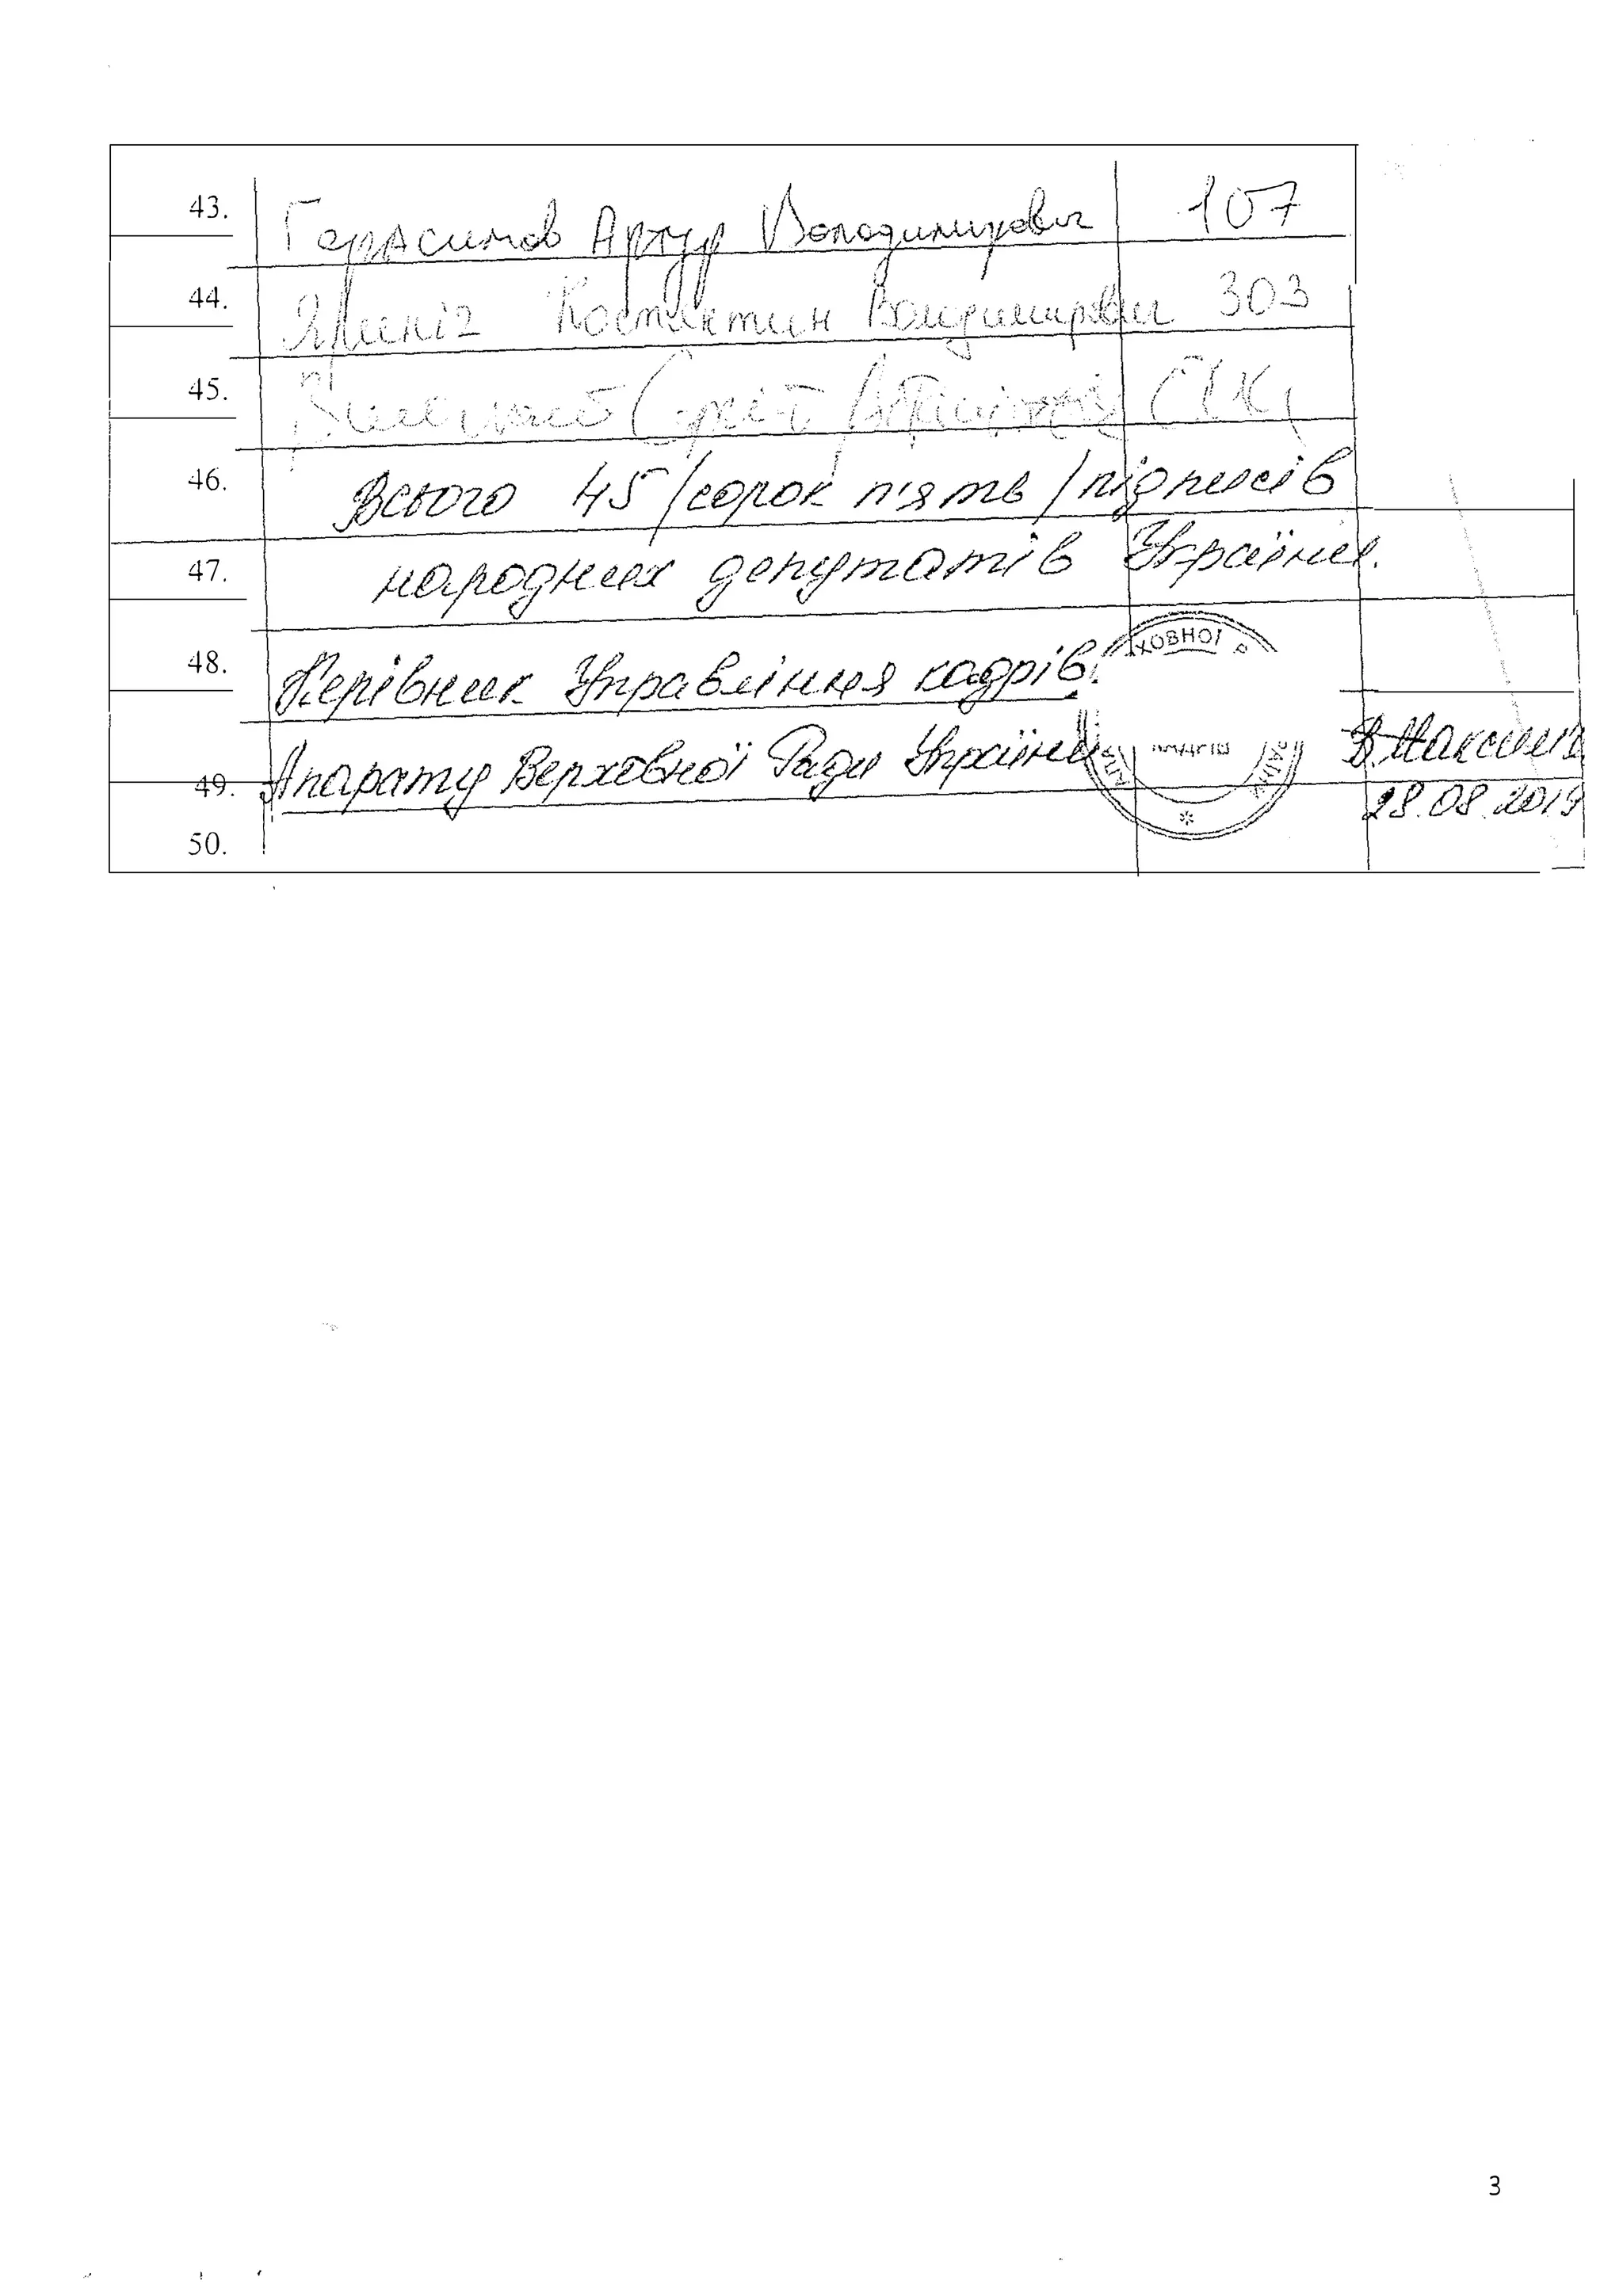 43. Герасимов Артур Володимирович 107
44. Костянтин Володимирович 303
45. Сергій
46. Всього 45 /сорок п'ять/ підписів
47. народних депутатів України.
48. Керівник Управління кадрів
ХОВНОЇ Р
49. Апарату Верховної Ради України В.Максим
28.08.2019
50.
3